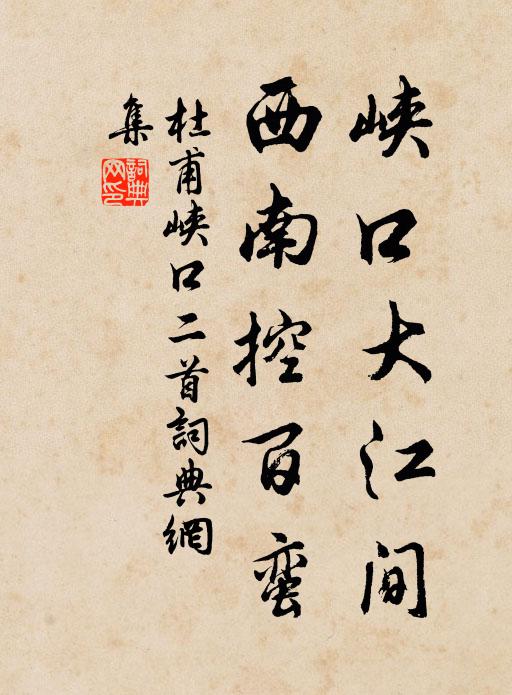 峡口大江间
西南控百蛮
杜甫峡口二首詞典網
集
詞典网印